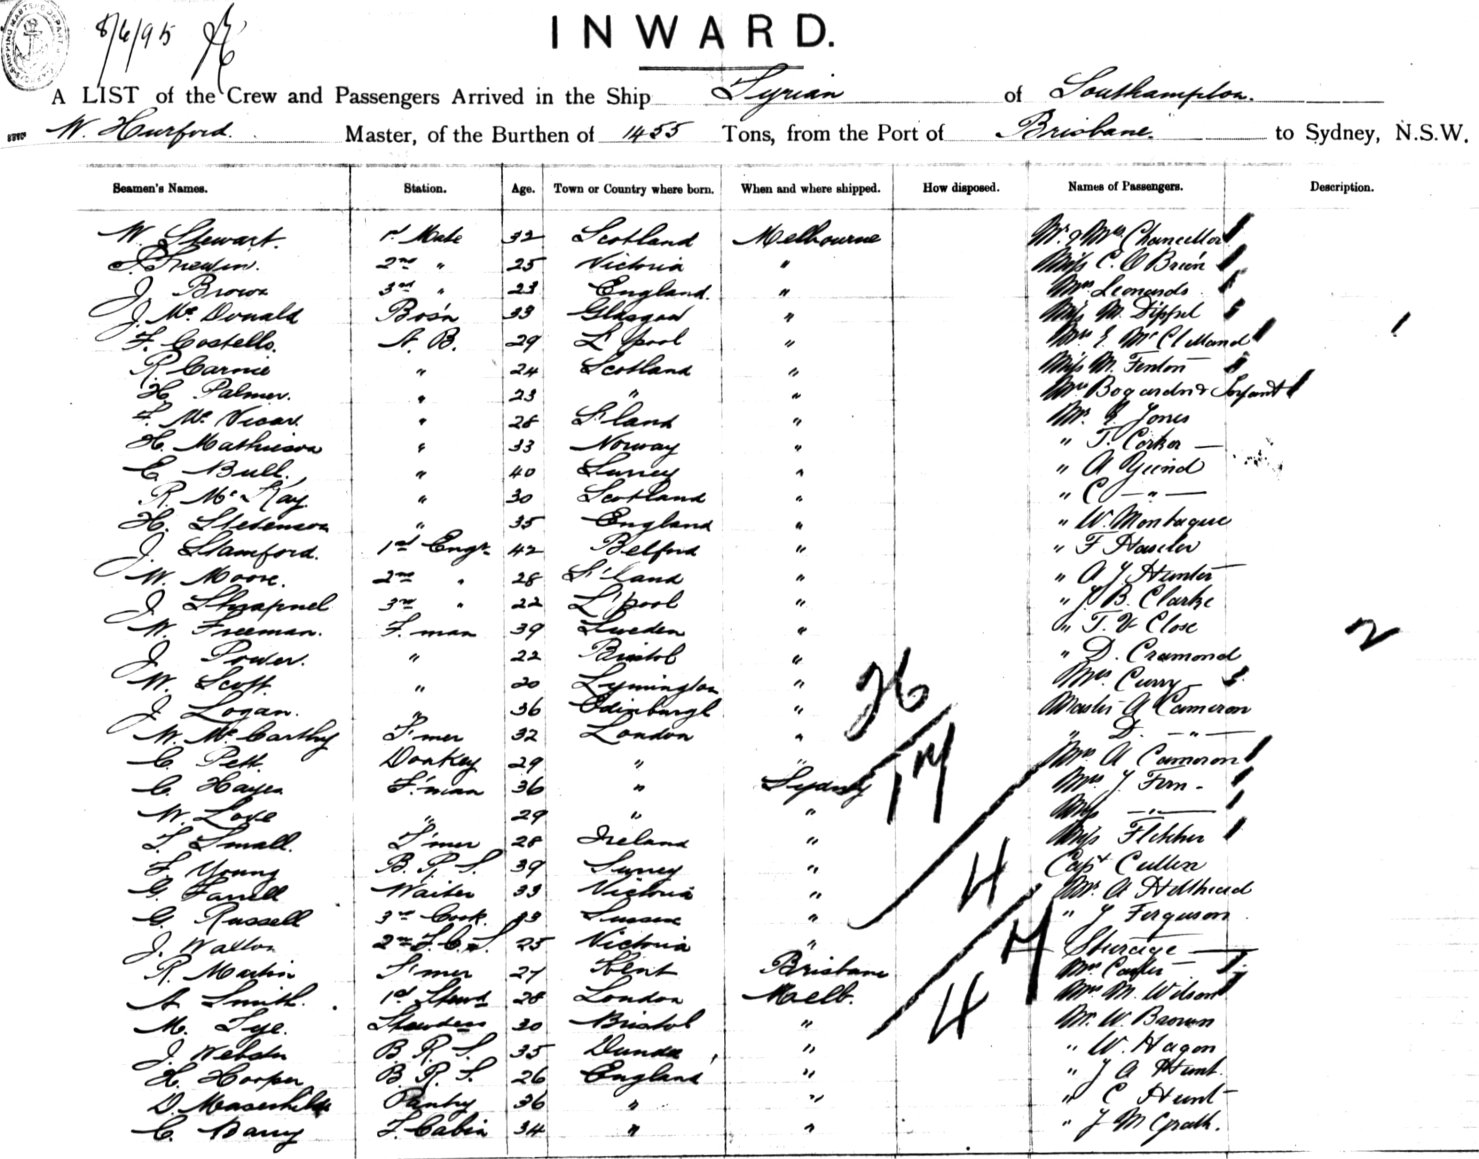 8/6/95
INWARD.
A LIST of the Crew and Passengers Arrived in the Ship Syrian of Southampton.
W. Hurford. Master, of the Burthen of 1455 Tons, from the Port of Brisbane. to Sydney, N.S.W.
Seamen's Names. Station. Age. Town or Country where born. When and where shipped. How disposed. Names of Passengers. Description.
W. Stewart. 1st Mate 32 Scotland Melbourne Mr. & Mrs. Chancellor
2nd " 25 Victoria " Miss C. O'Brien
J. Brown 3rd " 23 England. " Mrs
J. McDonald Bos'n 33 Glasgow " Miss M.
F. Costello. A. B. 29 L'pool " Mrs E McClelland
R. Carnie " 24 Scotland " Miss M. Fenton
H. Palmer. " 23 " " Mrs & Infant
F. McVicar " 28 " Mr. Jones
H. Mathieson " 33 Norway " " T. Corker
C. Bull. " 40 Surrey " " A
R. McKay " 30 Scotland " " C — " —
H. Stevenson " 35 England " " W. Montague
J. Stamford. 1st Engr. 42 Belford " " F
W. Moore. 2nd " 28 " " A J Hunter
J. Shrapnel 3rd " 22 L'pool " " B. Clarke
W. Freeman. F.man 39 Sweden " " T. Close
J. Power. " 22 Bristol " " D. Cramond
2
W. Scott. " 20 Lymington " Mrs Curry
J. Logan. " 36 Edinburgh " Master A Cameron
26
W. McCarthy 32 London " " D. — " —
C. Pett. Donkey 29 " " Mrs A Cameron
C. Hayes F.man 36 " Sydney Mrs J.
17
W. Love " 29 " " Miss — " —
T. Small. 28 Ireland " Miss Fletcher
F. Young B. R. S. 39 Surrey " Capt Cullen
4
G. Farrell Waiter 33 Victoria " Mr. A
G. Russell 3rd Cook. 33 Sussex " " J Ferguson
J. Walton 25 Victoria " Steerage
R. Martin 27 Kent Brisbane Mrs
A Smith. 1st Stewd 28 London Melb. Mrs M. Wilson
47
4
M. Tye. Stewdess 30 Bristol " Mr. W. Brown
J. Webster B. R. S. 35 Dundee " " W. Hagon
H. Hooper B. R. S. 26 England " " J A Hunt.
D. Pantry 36 " " " C Hunt
C. Barry F. Cabin 34 " " " J McGrath.